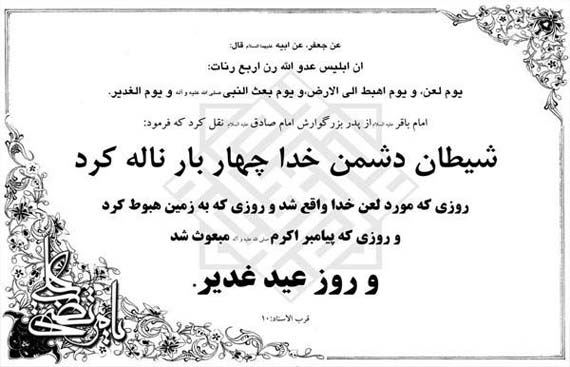 عن جعفر، عن ابیه علیهما السلام قال:
ان ابلیس عدو الله رن اربع رنات:
یوم لعن، و یوم اهبط الی الارض،و یوم بعث النبی صلی الله علیه و آله و یوم الغدیر.
امام باقر علیه السلام از پدر بزرگوارش امام صادق علیه السلام نقل کرد که فرمود:
شیطان دشمن خدا چهار بار ناله کرد
روزی که مورد لعن خدا واقع شد و روزی که به زمین هبوط کرد
و روزی که پیامبر اکرم صلی الله علیه و آله مبعوث شد
و روز عید غدیر.
قرب الاسناد: ۱۰
یا علی مرتضی